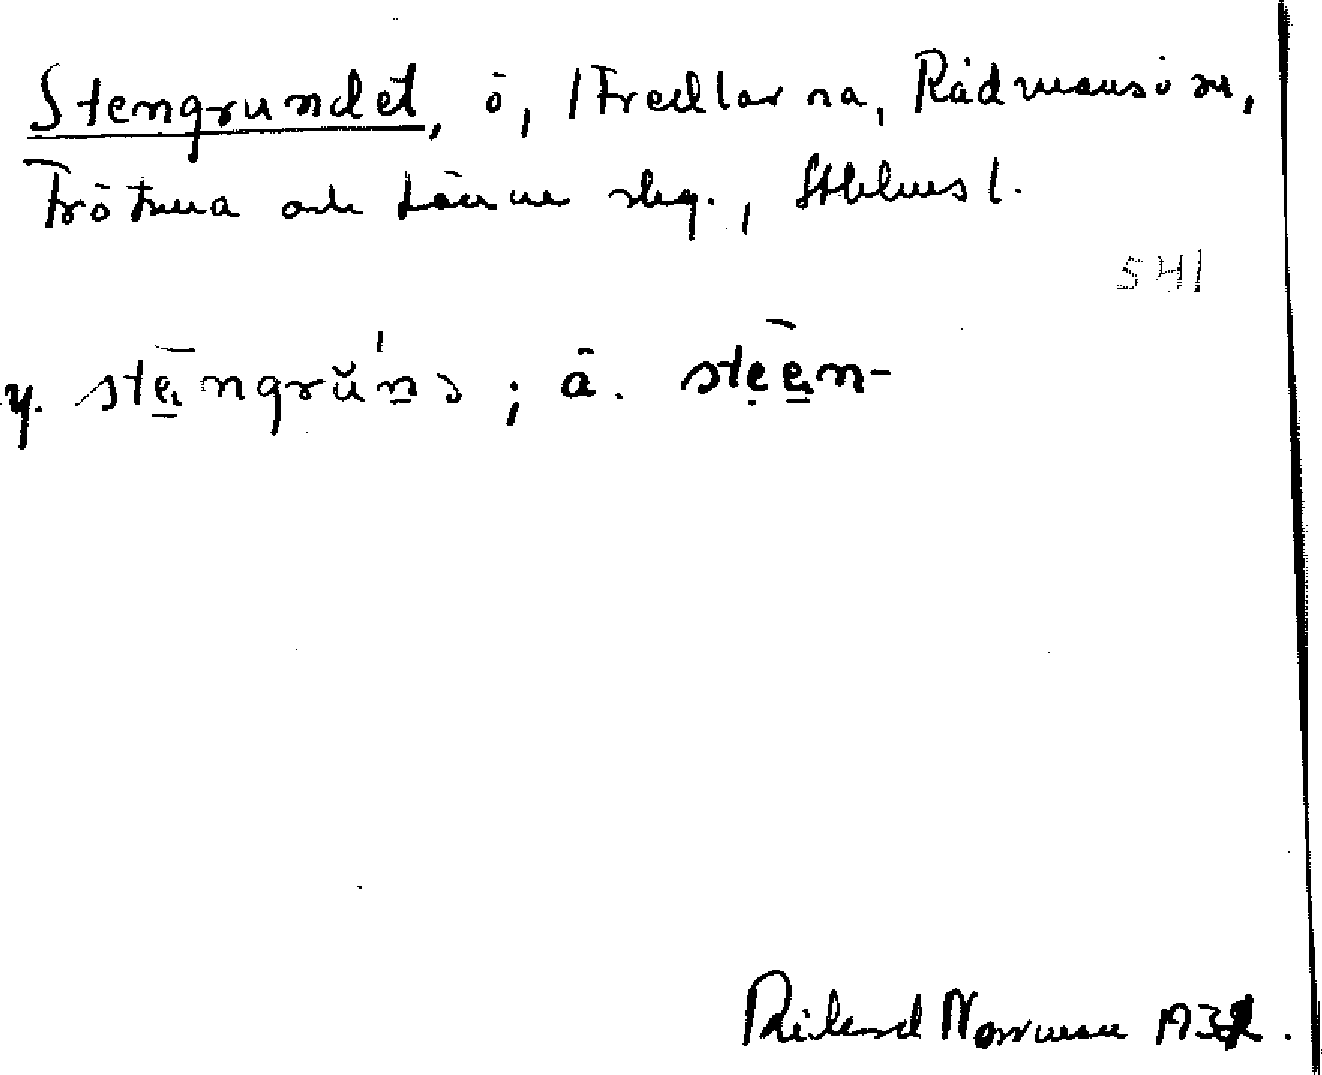 Stengrundet, ö, /Fredlarna, Rådmansö sn,
Frötuna och Länna skg., Sthlms l.
541
y. stēngrŭ'nd ; ä. steēn-
Rikard Norrman 1932.